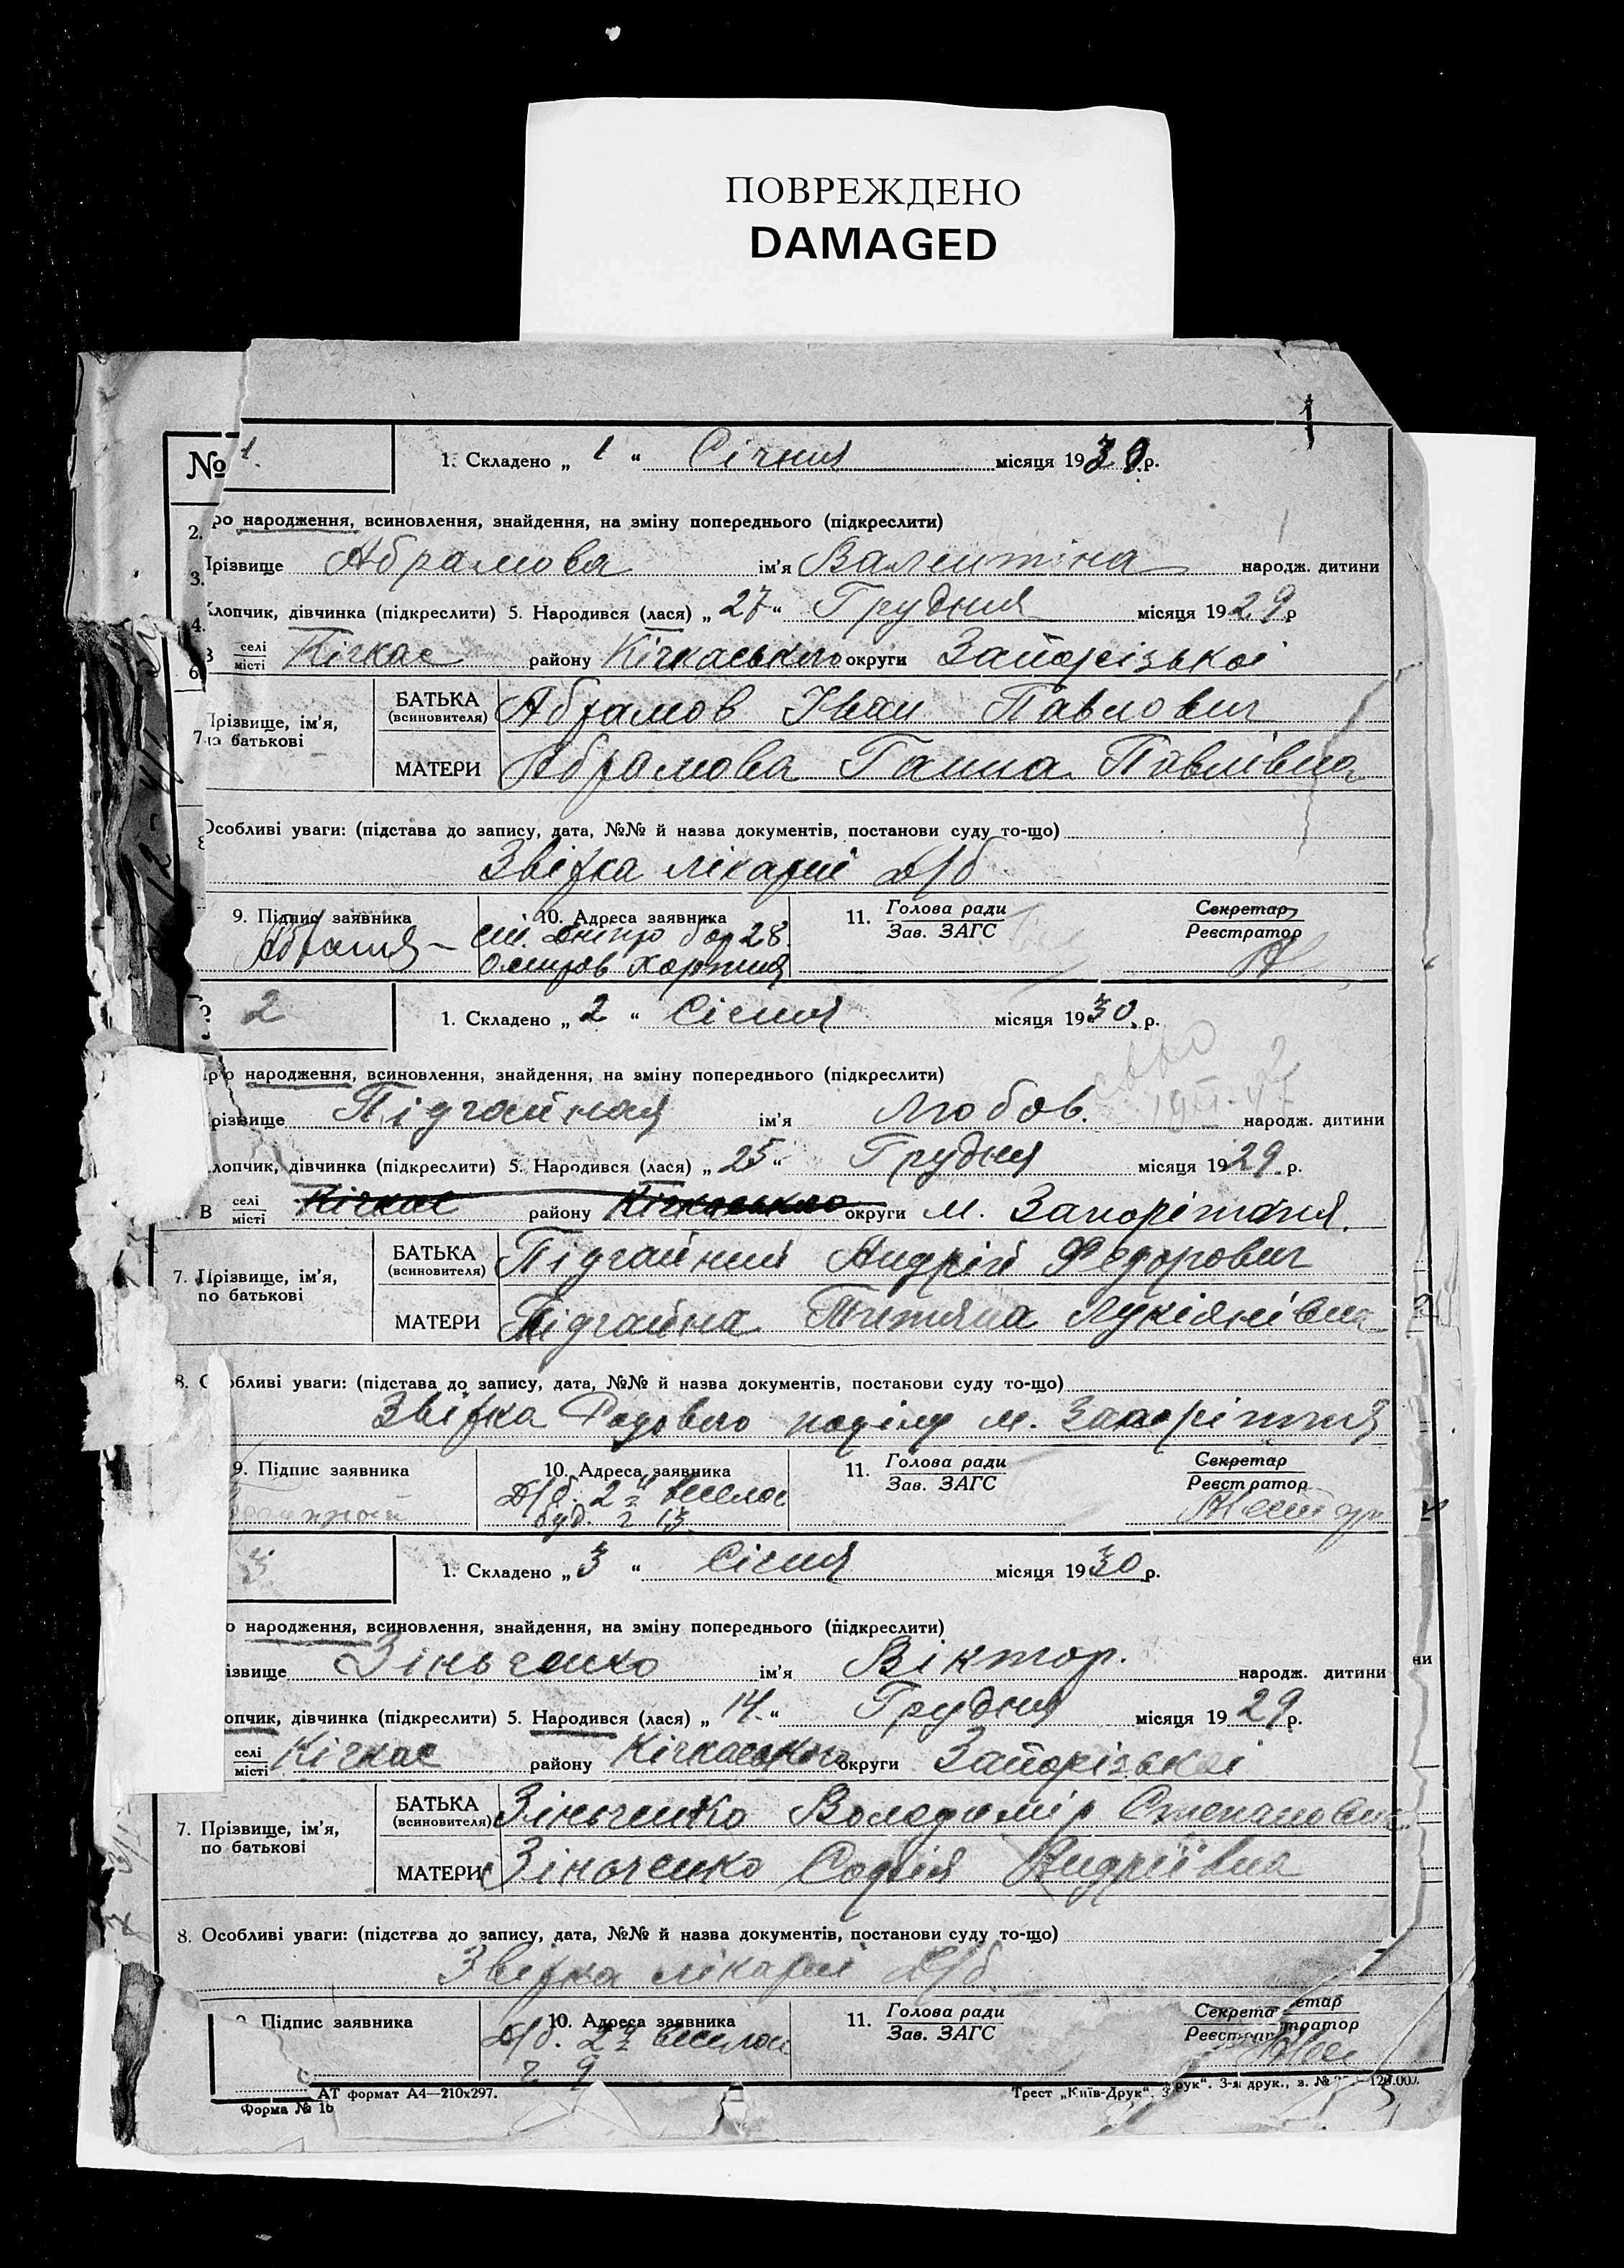 ПОВРЕЖДЕНО
DAMAGED
1
№ 1. 1. Складено „ 1 “ Січня місяця 1930 р.
2. ро народження, всиновлення, знайдення, на зміну попереднього (підкреслити)
3. Прізвище Абрамова ім'я Валентіна народж. дитини
4. Хлопчик, дівчинка (підкреслити) 5. Народився (лася) „ 27 “ Грудня місяця 1929 р
6 В селі місті Кічкас району Кічкаського округи Запорізької
7. Прізвище, ім'я, по батькові
БАТЬКА (всиновителя) Абрамов Іван Павлович
МАТЕРИ Абрамова Ганна Павлівна
8 Особливі уваги: (підстава до запису, дата, №№ й назва документів, постанови суду то-що)
Звітка лікарні Д/б
9. Підпис заявника 10. Адреса заявника 11. Голова ради Зав. ЗАГС Секретар Реєстратор
Дніпро бар 28.
2 1. Складено „ 2 “ Січня місяця 1930. р.
про народження, всиновлення, знайдення, на зміну попереднього (підкреслити)
різвище Підгайная ім'я Любов. народж. дитини
лопчик, дівчинка (підкреслити) 5. Народився (лася) „ 25 “ Грудня місяця 1929. р.
В селі місті Кічкас району Кічкаського округи м. Запоріжжя.
7. Прізвище, ім'я, по батькові
БАТЬКА (всиновителя) Підгайний Андрій Федорович
МАТЕРИ Підгайна Титяна Лукіянівна
8. Особливі уваги: (підстава до запису, дата, №№ й назва документів, постанови суду то-що)
Звітка Родового поділу м. Запоріжжя
9. Підпис заявника 10. Адреса заявника 11. Голова ради Зав. ЗАГС Секретар Реєстратор
Д/б. 2 й Веселое
буд. 2 13.
3 1. Складено „ 3 “ Січня місяця 1930 р.
о народження, всиновлення, знайдення, на зміну попереднього (підкреслити)
ізвище Зіньченко ім'я Віктор. народж. дитини
опчик, дівчинка (підкреслити) 5. Народився (лася) „ 14 “ Грудня місяця 1929 р.
селі місті Кічкас району Кічкаського округи Запорізької
7. Прізвище, ім'я, по батькові
БАТЬКА (всиновителя) Зіньченко Володимір Степанович
МАТЕРИ Зіньченко Софія Андріївна
8. Особливі уваги: (підстава до запису, дата, №№ й назва документів, постанови суду то-що)
Звітка лікарні Д/б
Підпис заявника 10. Адреса заявника 11. Голова ради Зав. ЗАГС Секретар Реєстратор
Д/б. 2 й Веселое
2 9
АТ формат А4—210х297. Трест „Київ-Друк“. 3-я друк., з. №
Форма № 1б